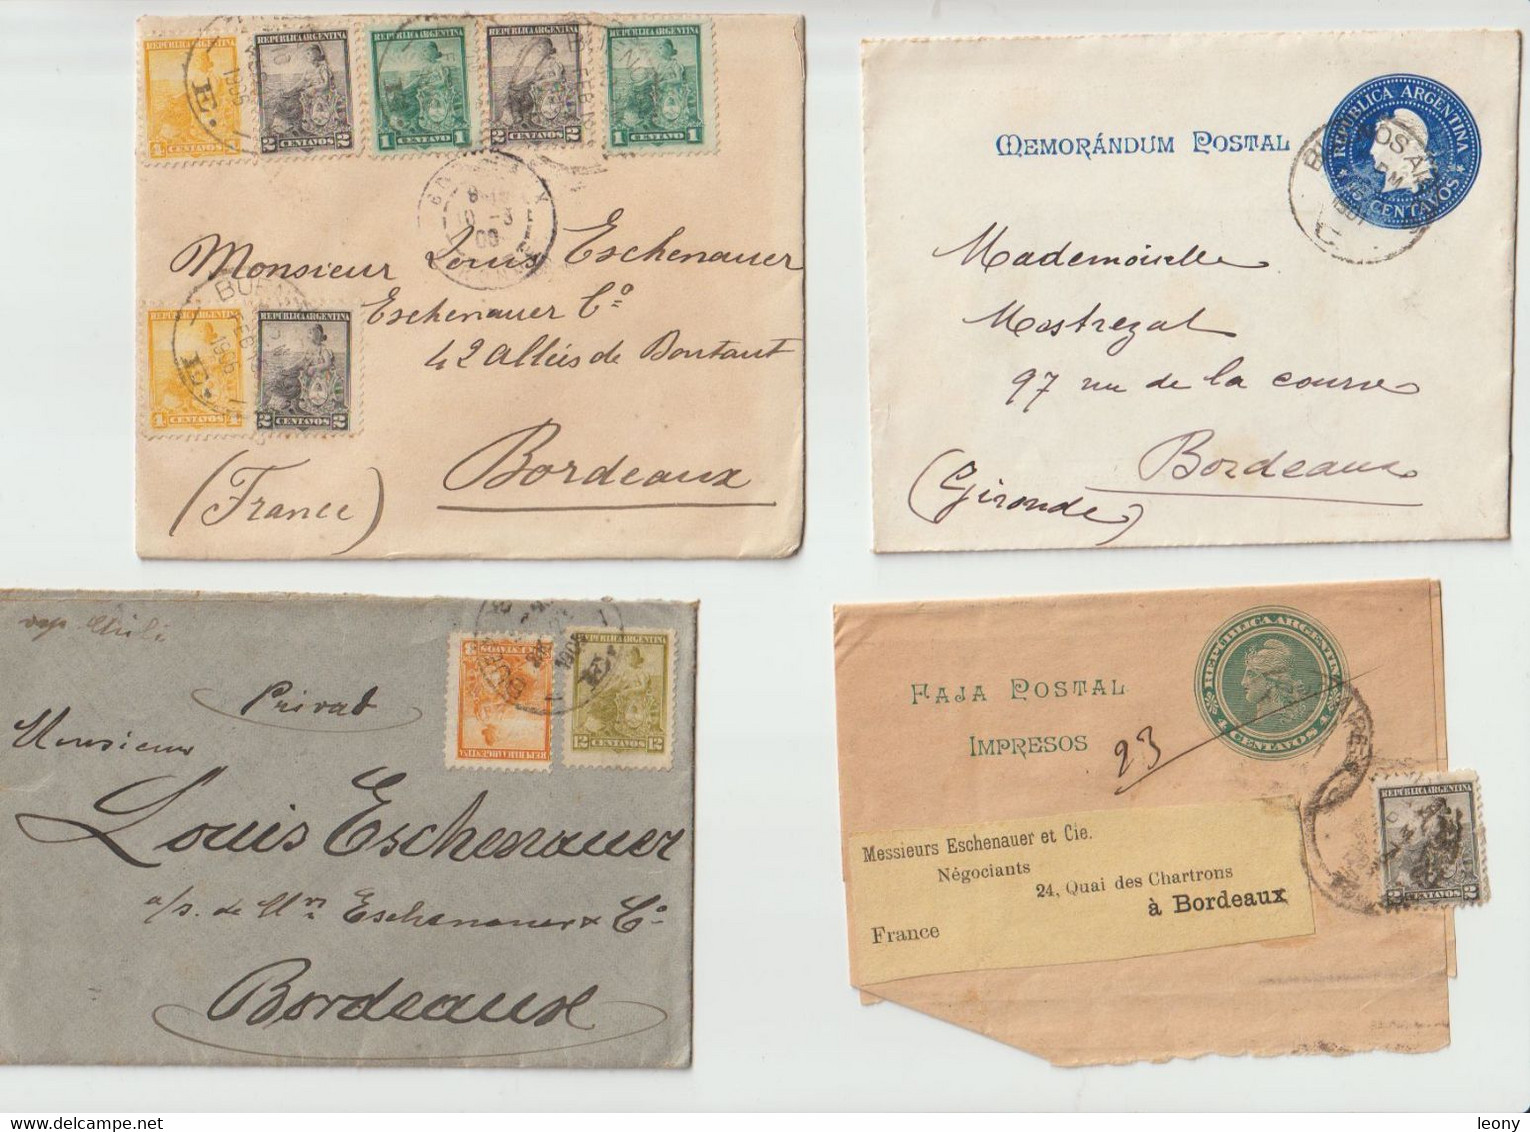 REPUBLICA ARGENTINA
4 CENTAVOS
REPUBLICA ARGENTINA
2 CENTAVOS 2
REPUBLICA ARGENTINA
1 CENTAVO 1
REPUBLICA ARGENTINA
2 CENTAVOS 2
REPUBLICA ARGENTINA
1 CENTAVO 1
1906
E.
Monsieur Louis Eschenauer
Eschenauer Cº
42 Allées de Boutaut
Bordeaux
(France)
REPUBLICA ARGENTINA
4 CENTAVOS 4
REPUBLICA ARGENTINA
2 CENTAVOS 2
FEB
1906
E.
MEMORÁNDUM POSTAL
REPUBLICA ARGENTINA
15 CENTAVOS
BUENOS AIRES
1901
Mademoiselle
Mestrezat
97 rue de la course
Bordeaux
(Gironde)
Privat
Monsieur
Louis Eschenauer
a/s. de Mrs Eschenauer & Cº
Bordeaux
REPUBLICA ARGENTINA
3 CENTAVOS
REPUBLICA ARGENTINA
12 CENTAVOS 12
FAJA POSTAL
IMPRESOS
REPÚBLICA ARGENTINA
4 CENTAVOS 4
23
Messieurs Eschenauer et Cie.
Négociants
24, Quai des Chartrons
à Bordeaux
France
REPUBLICA ARGENTINA
2 CENTAVOS 2
leony